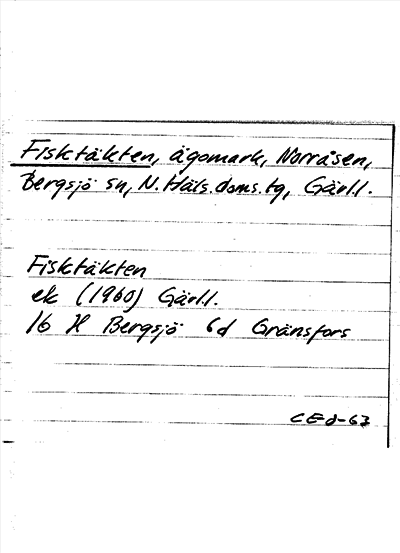 Fisktäkten, ägomark, Norråsen,
Bergsjö sn, N. Häls. doms. tg, Gävll.
Fisktäkten
ek (1960) Gävll.
16 H Bergsjö 6d Gränsfors
CEJ-63